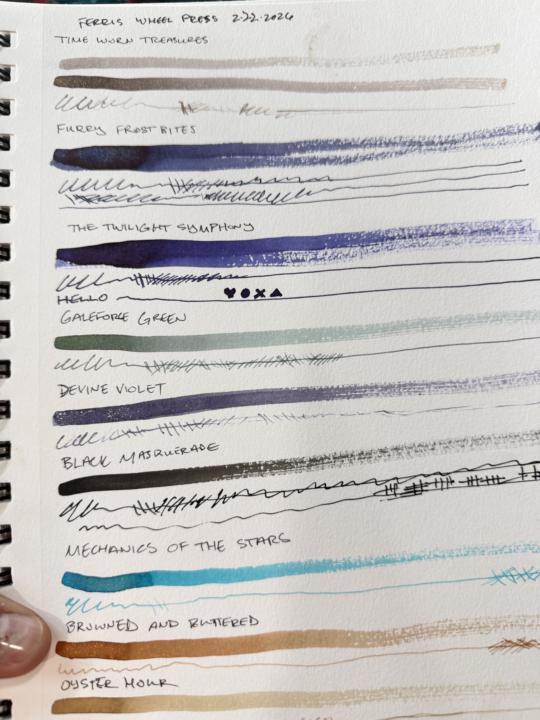 FERRIS WHEEL PRESS 2.22.2026
TIME WORN TREASURES
FURRY FROSTBITES
THE TWILIGHT SYMPHONY
HELLO
GALEFORCE GREEN
DEVINE VIOLET
BLACK MASQUERADE
MECHANICS OF THE STARS
BROWNED AND BUTTERED
OYSTER HOUR